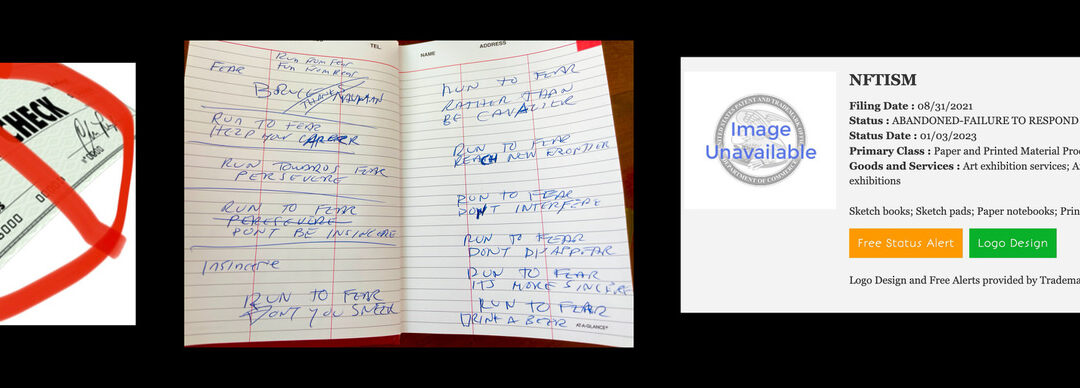 CHECK
0000
000
TEL.
RUN FROM FEAR
FUN FROM REAR
FEAR
BRUCE NAUMAN
THANKS
RUN TO FEAR
HELP YOUR CAREER
RUN TOWARDS FEAR
PERSEVERE
RUN TO FEAR
PERSEVERE
DONT BE INSINCERE
INSINCERE
RUN TO FEAR
DONT YOU SNEER
NAME
ADDRESS
RUN TO FEAR
RATHER THAN
BE CAVALIER
RUN TO FEAR
REACH NEW FRONTIER
RUN TO FEAR
DONT INTERFERE
RUN TO FEAR
DONT DISAPPEAR
RUN TO FEAR
ITS MORE SINCERE
RUN TO FEAR
DRINK A BEER
AT-A-GLANCE®
NFTISM
Filing Date : 08/31/2021
Status : ABANDONED-FAILURE TO RESPOND
Status Date : 01/03/2023
Primary Class : Paper and Printed Material Pro
Goods and Services : Art exhibition services; A
exhibitions
Sketch books; Sketch pads; Paper notebooks; Prin
Free Status Alert
Logo Design
Logo Design and Free Alerts provided by Tradema
UNITED STATES PATENT AND TRADEMARK OFFICE
Image
Unavailable
DEPARTMENT OF COMMERCE